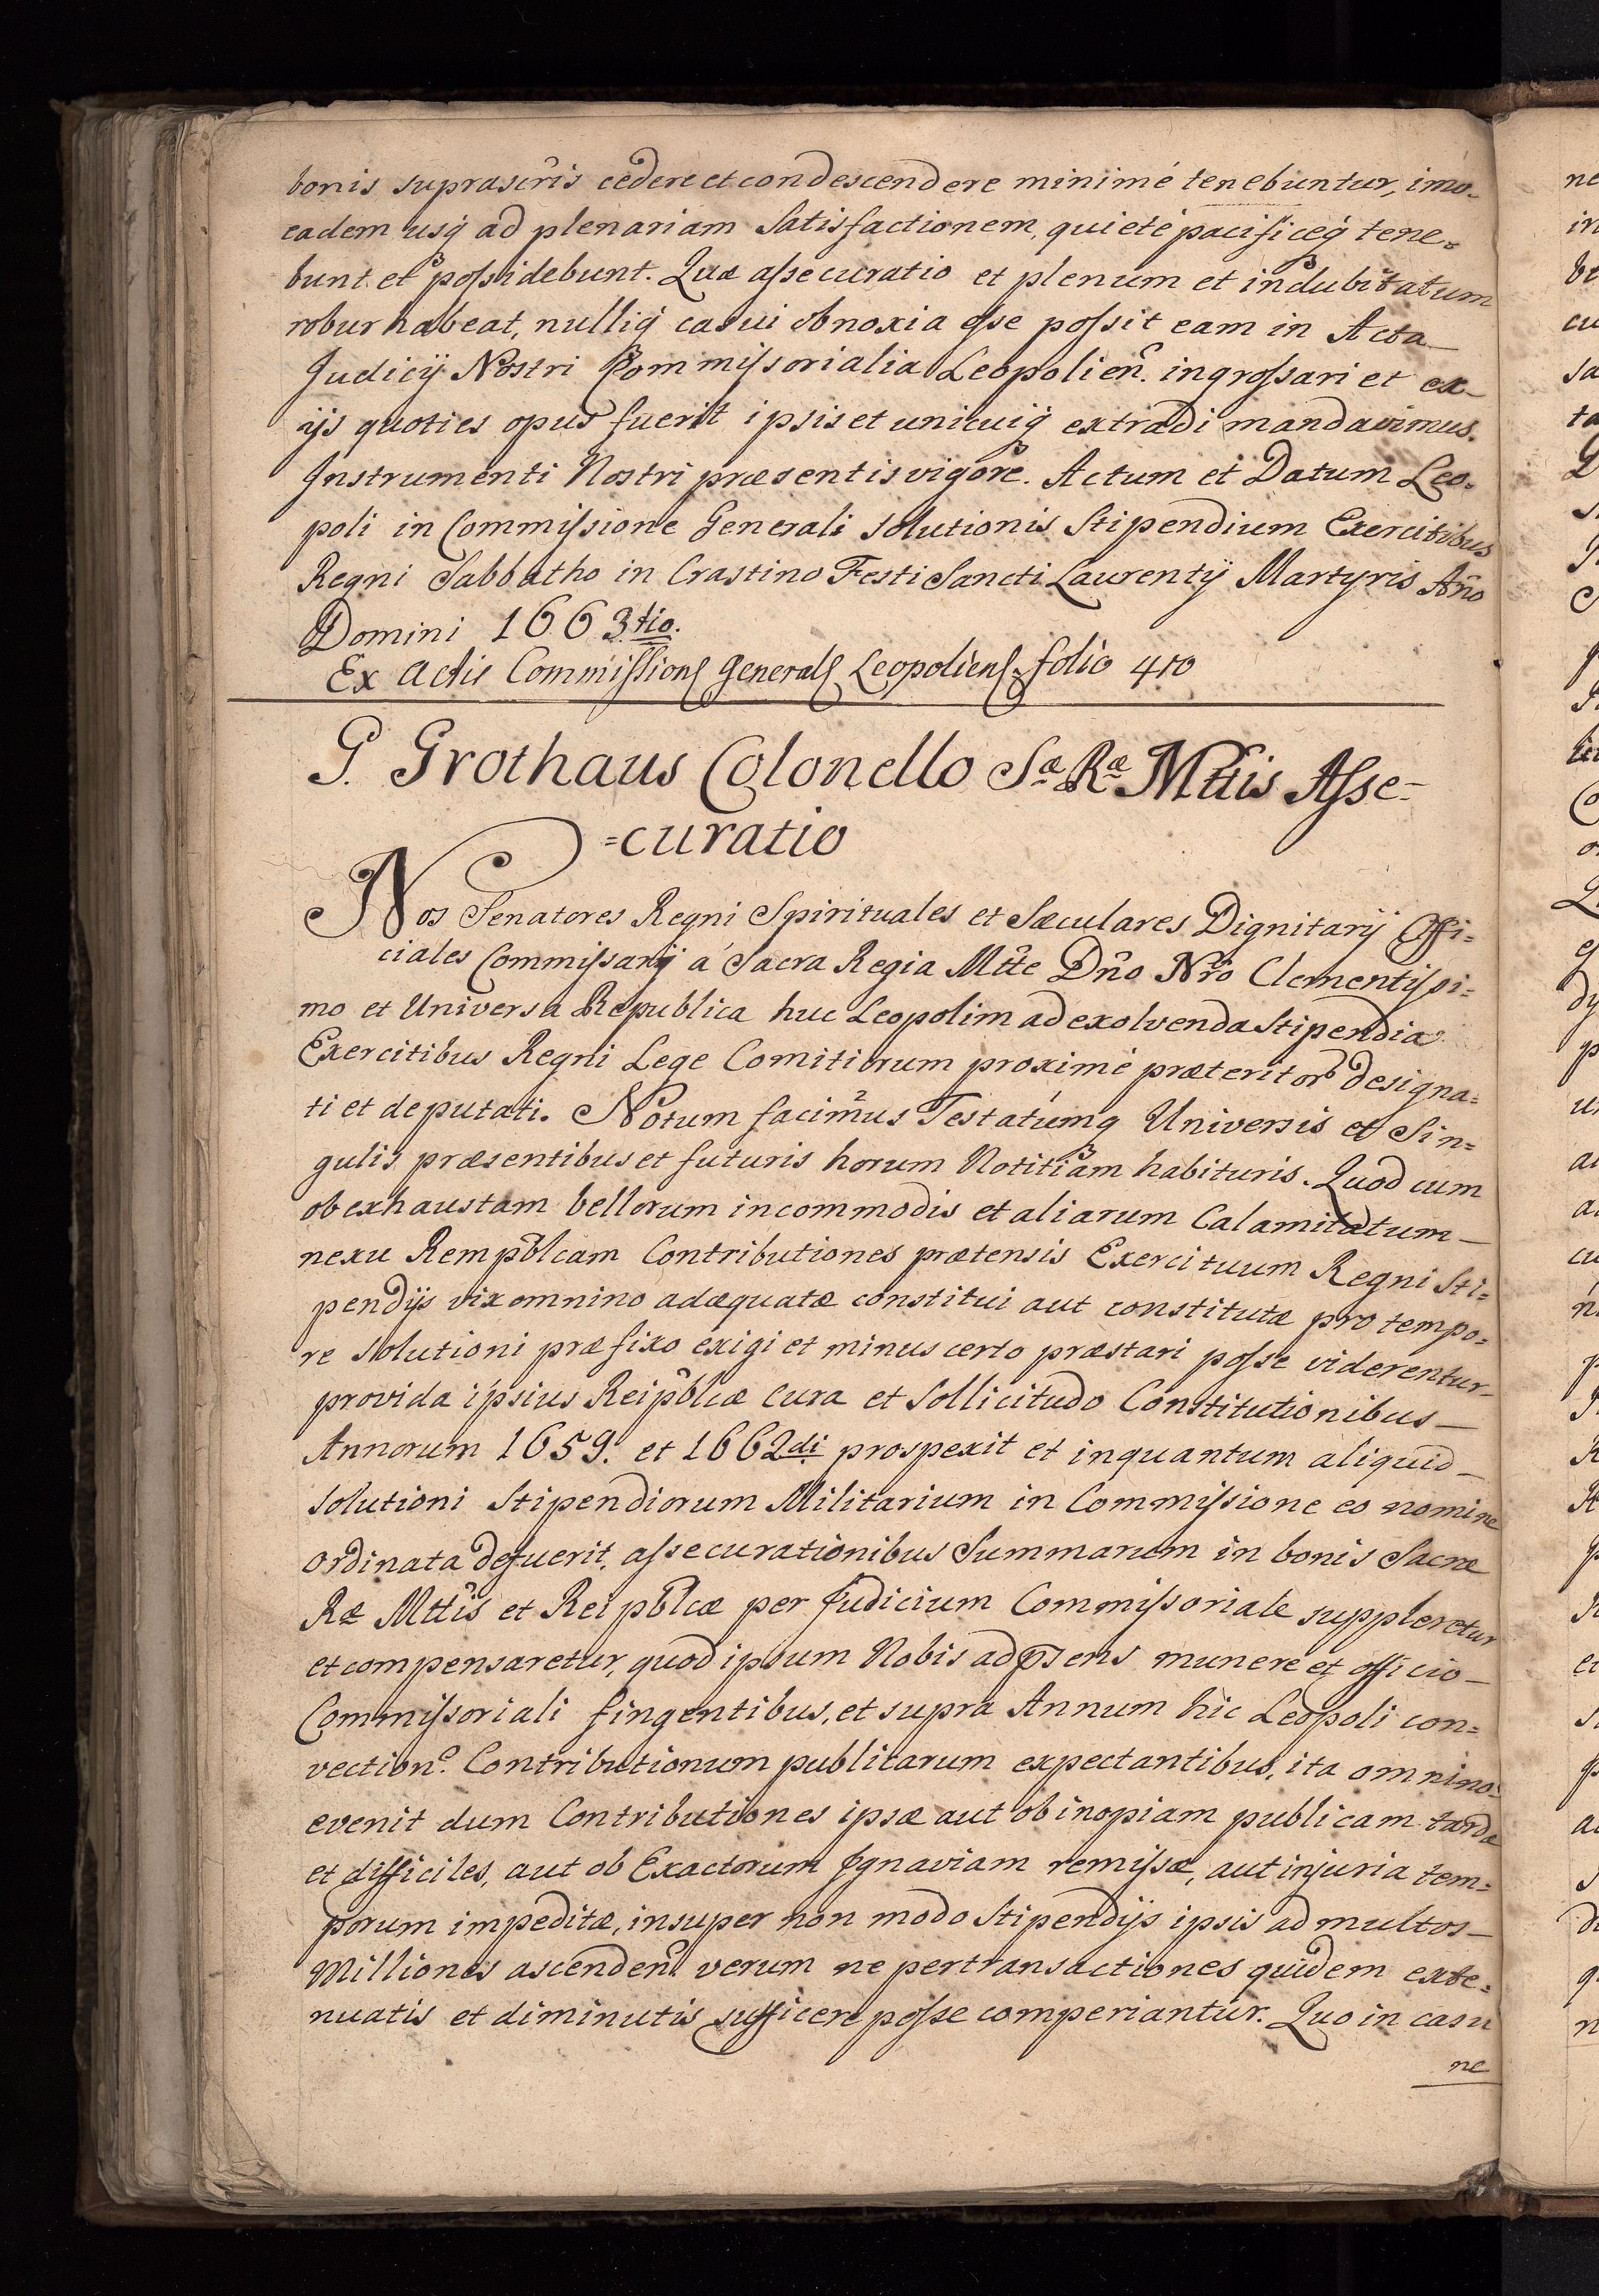 bonis suprascris cedere et condescendere minimé tenebuntur, imo-
eadem usq ad plenariam Satisfactionem, quieté pacificeq tene=
bunt et possidebunt. Quæ assecuratio et plenum et indubitatum
robur habeat, nulliq casui obnoxia esse possit eam in Acta
Judicij Nostri Commissorialia Leopolien. ingrossari et ex
ijs quoties opus fuerit ipsis et unicuiq extradi mandavimus.
Instrumenti Nostri præsentis vigore. Actum et Datum Leo=
poli in Commissione Generali solutionis Stipendium Exercitibus
Regni Sabbatho in Crastino Festi Sancti Laurentij Martyris Año
Domini 1663tio.
Ex Actis Commissions Generals Leopoliens folio 410
G. Grothaus Colonello Sæ Ræ Mttis Asse=
=curatio
Nos Senatores Regni Spirituales et Sæculares Dignitarij Offi=
ciales Commissarij á Sacra Regia Mtte Dño Nro Clementissi=
mo et Universa Republica huc Leopolim ad exolvenda Stipendia
Exercitibus Regni Lege Comitiorum proximé præteritor designa=
ti et deputati. Notum facimus Testatumq Universis et Sin=
gulis præsentibus et futuris horum Notitiam habituris. Quod cum
ob exhaustam bellorum incommodis et aliarum Calamitatum
nexu Rempblcam Contributiones prætensis Exercituum Regni Sti=
pendijs vix omnino adæquatæ constitui aut constitutæ pro tempo=
re solutioni præfixo exigi et minus certo præstari posse viderentur
provida ipsius Reipblcæ Cura et Sollicitudo Constitutionibus
Annorum 1659. et 1662di prospexit et inquantum aliquid
solutioni Stipendiorum Militarium in Commissione eo nomine
ordinata defuerit, assecurationibus Summarum in bonis Sacræ
Ræ Mttis et Reipblcæ per Judicium Commissoriale suppleretur
et compensaretur, quod ipsum Nobis ad psens munere et officio
Commissoriali fingentibus, et supra Annum hic Leopoli con=
vection. Contributionum publicarum expectantibus, ita omnino
evenit dum Contributiones ipsæ aut ob inopiam publicam tardæ
et difficiles, aut ob Exactorum Ignaviam remissæ, aut injuria tem=
porum impeditæ, insuper non modo Stipendijs ipsis ad multos
Milliones ascenden. verum ne per transactiones quidem exte=
nuatis et diminutis sufficere posse comperiantur. Quo in casu
ne